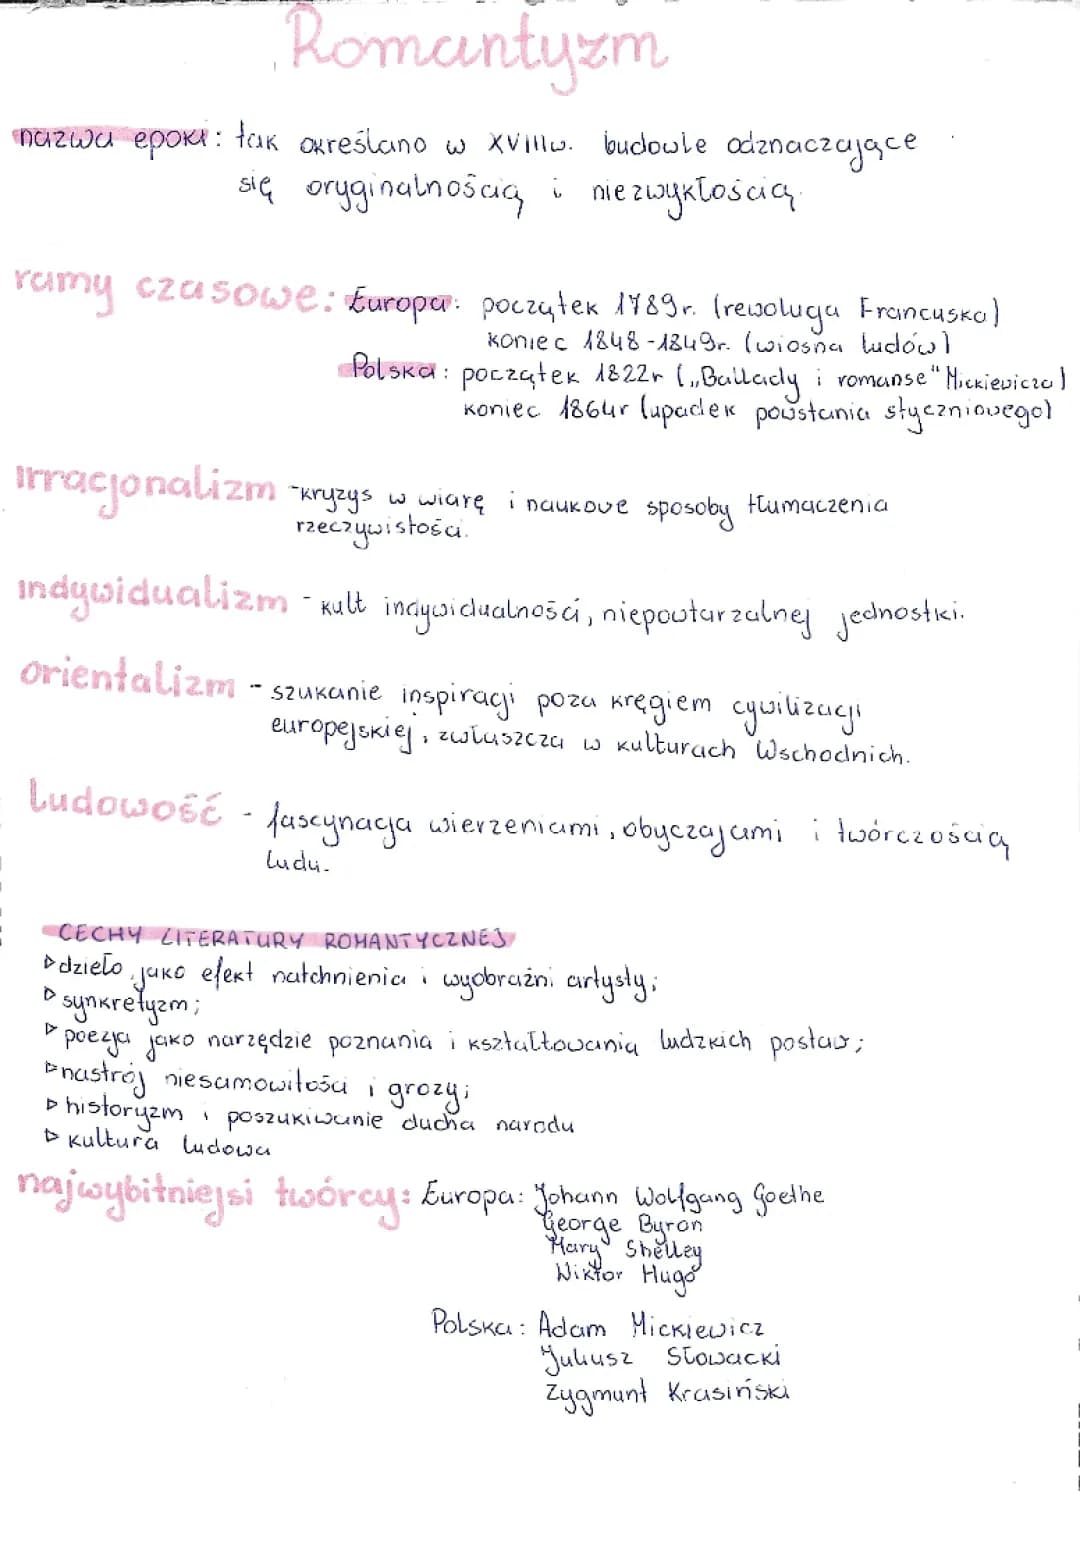 Romantyzm
nazwa epoki: tak określano w XVIIIw. budowle odznaczające
się oryginalnością i niezwykłością.
ramy czasowe: Europa: początek 1789r. (rewolucja Francuska)
koniec 1848-1849r. (wiosna ludów)
Polska: początek 1822r („Ballady i romanse" Mickiewicza)
koniec 1864r (upadek powstania styczniowego)
irracjonalizm - kryzys w wiarę i naukowe sposoby tłumaczenia
rzeczywistości.
indywidualizm - kult indywidualności, niepowtarzalnej jednostki.
orientalizm - szukanie inspiracji poza kręgiem cywilizacji
europejskiej, zwłaszcza w kulturach Wschodnich.
Ludowość - fascynacja wierzeniami, obyczajami i twórczością
ludu.
CECHY LITERATURY ROMANTYCZNEJ
▷ dzieło jako efekt natchnienia i wyobraźni artysty;
▷ synkretyzm;
▷ poezja jako narzędzie poznania i kształtowania ludzkich postaw;
▷ nastrój niesamowitości i grozy;
▷ historyzm i poszukiwanie ducha narodu
▷ kultura ludowa
najwybitniejsi twórcy: Europa: Johann Wolfgang Goethe
George Byron
Mary Shelley
Wiktor Hugo
Polska: Adam Mickiewicz
Juliusz Słowacki
Zygmunt Krasiński